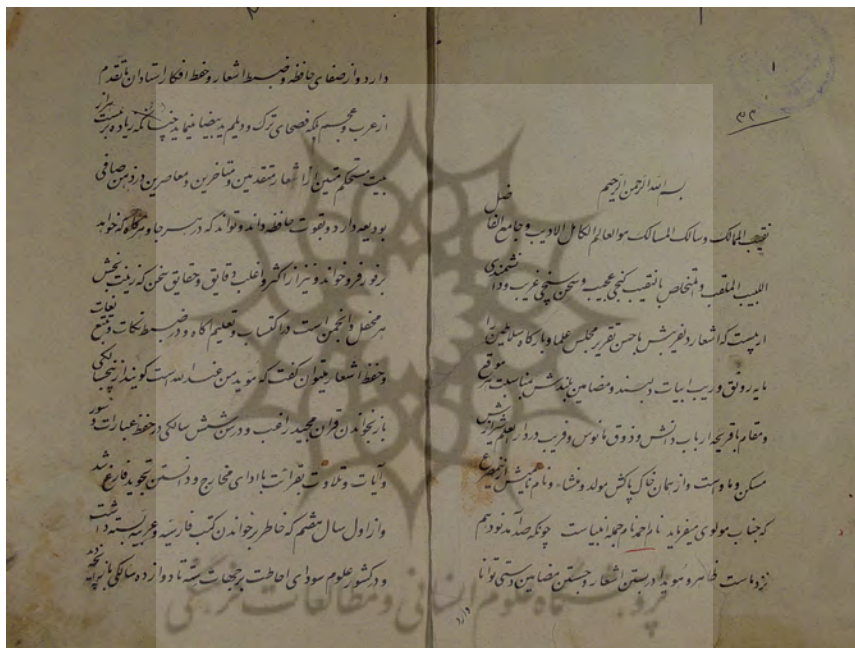 ۱
۳۲
بسم الله الرحمن الرحیم
نقیب الممالک و سالک المسالک هو العالم الکامل الادیب و جامع الفاضل
اللبیب الملقب و المتخلص بالنقیب گنجی عجیب و سخن سنجی غریب و دانشمندی
اریبست که اشعار دلفریبش باحسن تقریر مجلس علما و بارگاه سلاطین را
مایه رونق و زیب ابیات دلپسند و مضامین بلندش بمناسبت هر موقع
و مقام با قریحه ارباب دانش و ذوق مانوس و قریب دردار العلم شیرازش
مسکن و ماواست و از همان خاک پاکش مولد و منشاء و نام نامیش از مصرع
که جناب مولوی میفرماید نام احمد نام جمله انبیاست چونکه صد آمد نود هم
نزد ماست ظاهر و هویدا در بستن اشعار و جستن مضامین دستی توانا
دارد
دارد و از صفای حافظه و ضبط اشعار و حفظ افکار استادان ما تقدم
از عرب و عجم بلکه فصحای ترک و دیلم ید بیضا مینماید چنانکه زیاده بر بیست هزار
بیت مستحکم متین از اشعار متقدمین و متاخرین و معاصرین در ذهن صافی
بودیعه دارد و بقوت حافظه داند و تواند که در هر جا و هرگاه که خواهد
بر فور فرو خواند و نیز از اکثر و اغلب دقایق و حقایق سخن که زینت بخش
هر محفل و انجمن است در اکتساب و تعلیم آگاه و در ضبط نکات و تتبع لغات
و حفظ اشعار میتوان گفت که موید من عند الله است گویند از پنجسالگی
بازبخواندن قرآن مجید راغب و در سن شش سالگی در حفظ عبارات و سور
و آیات و تلاوت بقرائت با ادای مخارج و دانستن تجوید فارغ شد
و از اول سال هفتم که خاطر بر خواندن کتب فارسیه و عربیه بسته داشت
و در کشور علوم سودای احاطت بر جهات سته تا دوازده سالگی
پژوهشگاه علوم انسانی و مطالعات فرهنگی